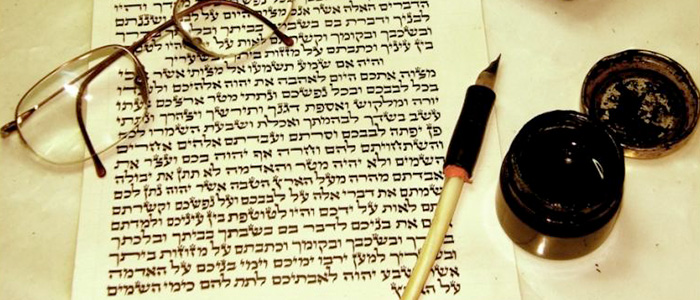 הדברים האלה אשר אנכי מצוך היום על לבבך
לבניך ודברת בם בשבתך בביתך
ובשכבך ובקומך וקשרתם לאות על ידך והיו לטטפת
בין עיניך וכתבתם על מזזות ביתך
והיה אם שמע תשמעו אל מצותי אשר אנכי
מצוה אתכם היום לאהבה את יהוה אלהיכם
בכל לבבכם ובכל נפשכם ונתתי מטר ארצכם בעתו
יורה ומלקוש ואספת דגנך ותירשך ויצהרך ונתתי
עשב בשדך לבהמתך ואכלת ושבעת השמרו לכם
פן יפתה לבבכם וסרתם ועבדתם אלהים אחרים
והשתחויתם להם וחרה אף יהוה בכם ועצר את
השמים ולא יהיה מטר והאדמה לא תתן את יבולה
ואבדתם מהרה מעל הארץ הטבה אשר יהוה נתן לכם
ושמתם את דברי אלה על לבבכם ועל נפשכם וקשרתם
אתם לאות על ידכם והיו לטוטפת בין עיניכם ולמדתם
אתם את בניכם לדבר בם בשבתך בביתך ובלכתך
ובשכבך ובקומך וכתבתם על מזוזות ביתך
ירבו ימיכם וימי בניכם על האדמה
יהוה לאבתיכם לתת להם כימי השמים
על הארץ